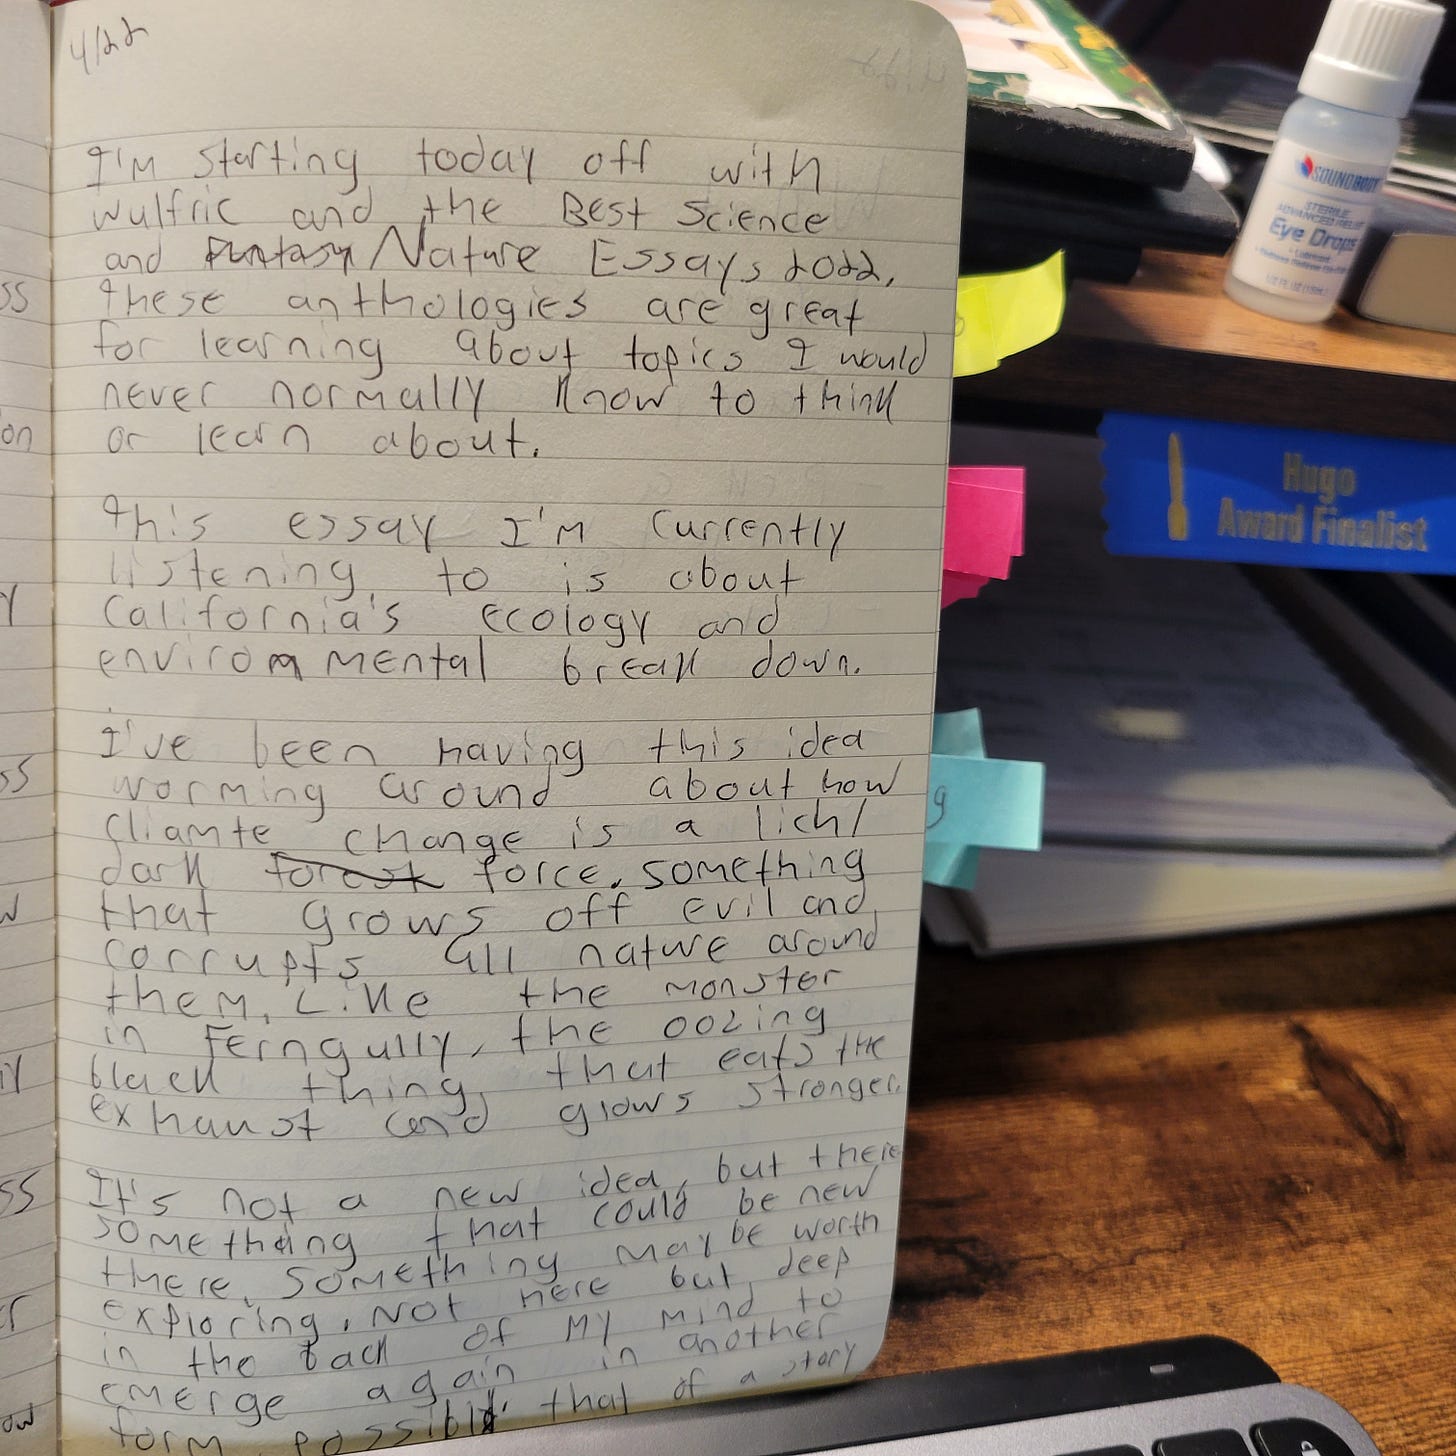 4/22
I'm starting today off with
Wulfric and the Best Science
and Funtasy Nature Essays 2022,
these anthologies are great
for learning about topics I would
never normally know to think
or learn about.
This essay I'm currently
listening to is about
California's ecology and
environmental break down.
I've been having this idea
worming around about how
cliamte change is a lich/
dark forest force, something
that grows off evil and
corrupts all nature around
them, Like the monster
in Ferngully, the oozing
black thing, that eats the
exhaust and glows stronger.
It's not a new idea, but there
something that could be new
there, something maybe worth
exploring, Not here but deep
in the back of my mind to
emerge again in another
form, possibly that of a story
ss
on
y
ss
w
ss
ow
g
SOUNDBODY
STERILE
ADVANCED RELIEF
Eye Drops
Hugo
Award Finalist